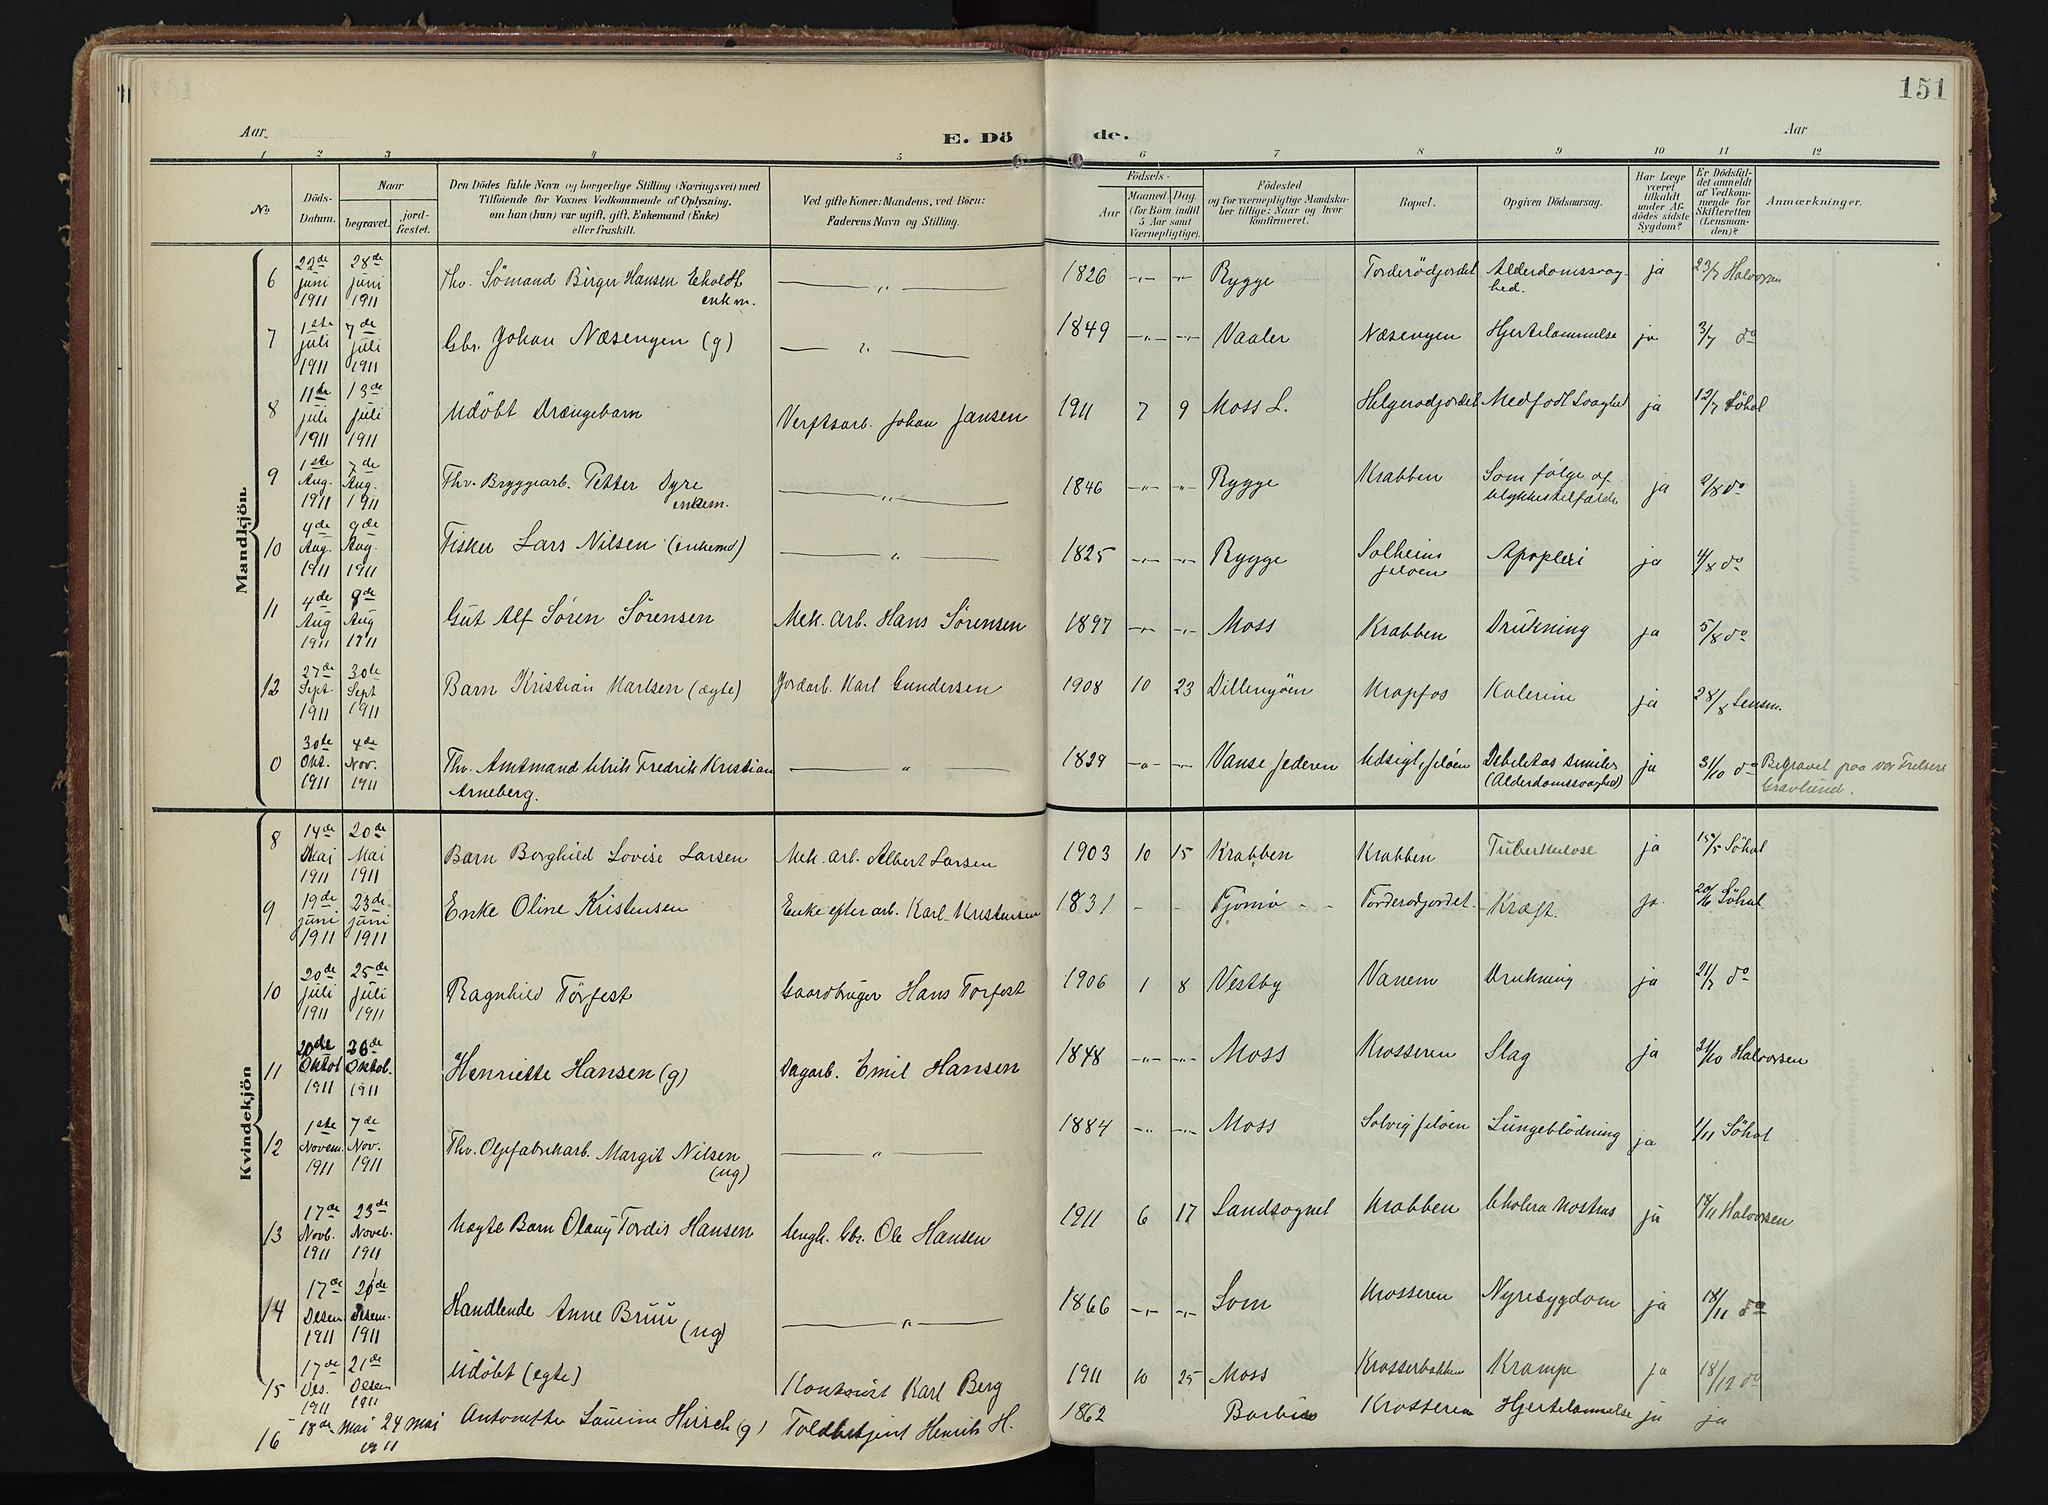 151
Aar
E. Dö
de.
Aar
1 2 3 4 5 6 7 8 9 10 11 12
No
Döds-Datum.
Naar
begravet.
jord-fæstet.
Den Dödes fulde Navn og borgerlige Stilling (Næringsvei) med
Tilföiende for Voxnes Vedkommende af Oplysning,
om han (hun) var ugift, gift, Enkemand (Enke)
eller fraskilt.
Ved gifte Koner: Mandens, ved Börn:
Faderens Navn og Stilling.
Födsels-
Aar
Maaned Dag.
(for Börn indtil
5 Aar samt
Værnepligtige).
Födested
og for værnepligtige Mandska-
ber tillige: Naar og hvor
konfirmeret.
Bopæl.
Opgiven Dödsaarsag.
Har Læge
været
tilkaldt
under Af-
dödes sidste
Sygdom?
Er Dödsfal-
det anmeldt
af Vedkom-
mende for
Skifteretten
(Lensman-
den)?
Anmærkninger.
Mandkjön.
6 22de juni 1911 28de juni 1911 Fhv. Sömand Birger Hansen Ekholdt enkm. — „ — 1826 -„- -„- Rygge Torderödjordet Alderdomssvaghed. ja 23/7 Halvorsen
7 1ste juli 1911 7de juli 1911 Gbr. Johan Næsengen (g) — „ — 1849 -„- -„- Vaaler Næsengen Hjertelammelse ja 3/7 do
8 11te juli 1911 13de juli 1911 Udöbt Drengebarn Verftsarb. Johan Jansen 1911 7 9 Moss L. Helgerödjordet Medfödt Svaghed ja 12/7 Söhol
9 1ste Aug. 1911 7de Aug. 1911 Fhv. Bryggearb. Petter Dyre enkem. — „ — 1846 -„- -„- Rygge Krabben Som følge af ulykkestilfælde ja 2/8 do
10 4de Aug. 1911 9de Aug. 1911 Fisker Lars Nilsen (enkemd) — „ — 1825 -„- -„- Rygge Solheim Jeløen Apoplexi ja 4/8 do
11 4de Aug 1911 8de Aug 1911 Gut Alf Sören Sörensen Mek. arb. Hans Sörensen 1897 -„- -„- Moss Krabben Drukning ja 5/8 do
12 27de Sept. 1911 30te Sept 1911 Barn Kristian Karlsen (ægte) Jordarb. Karl Gundersen 1908 10 23 Dillingöen Krapfos Kolerine ja 28/8 Lensm.
0 30te Okt. 1911 4de Nov. 1911 Fhv. Amtmand Ulrik Fredrik Kristian Arneberg. — „ — 1829 -„- -„- Vanse Jederen Udsigt, Jeløen Debilitas Senilis (Alderdomssvaghed) ja 31/10 do Begravet paa vor Frelsers Gravlund.
Kvindekjön
8 14de Mai 1911 20de Mai 1911 Barn Borghild Lovise Larsen Mek. arb. Albert Larsen 1903 10 15 Krabben Krabben Tuberkulose ja 15/5 Söhol
9 19de juni 1911 23de juni 1911 Enke Oline Kristensen Enke efter arb. Karl Kristensen 1831 - - Tjömö - - Torderødjordet Kræft. ja. 20/6 Söhol
10 20de juli 1911 25de juli 1911 Ragnhild Torfest Gaardbruger Hans Torfest 1906 1 8 Vestby Vanem Drukning ja 21/7 do
11 20de Oktob 1911 26de Oktob. 1911 Henriette Hansen (g) Dagarb. Emil Hansen 1848 -„- -„- Moss Krosseren Slag ja 21/10 Halvorsen
12 1ste Novem. 1911 7de Nov. 1911 Fhv. Oljefabrikarb. Margit Nilsen (ug) — „ — 1884 -„- -„- Moss Solvig Jeløen Lungeblödning ja 1/11 Söhol
13 17de Novb. 1911 23de Noveb. 1911 Uægte Barn Olany Tordis Hansen Ungk. Gbr. Ole Hansen 1911 6 17 Landsognet Krabben Cholera Nostras ja 18/11 Halvorsen
14 17de Desem 1911 21de Desem. 1911 Handlende Anne Bruu (ug) — „ — 1866 -„- -„- Som Krosseren Nyresygdom ja 18/11 do
15 17de Des. 1911 21de Desem 1911 Udöbt (egte) Kontorist Karl Berg 1911 10 25 Moss Krosserbakken Krampe ja 18/12 do
16 18de Mai 24 Mai 1911 Antonette Laurine Hirsch (g) Toldbetjent Henrik H. 1862 Krosseren Hjertelammelse ja ja